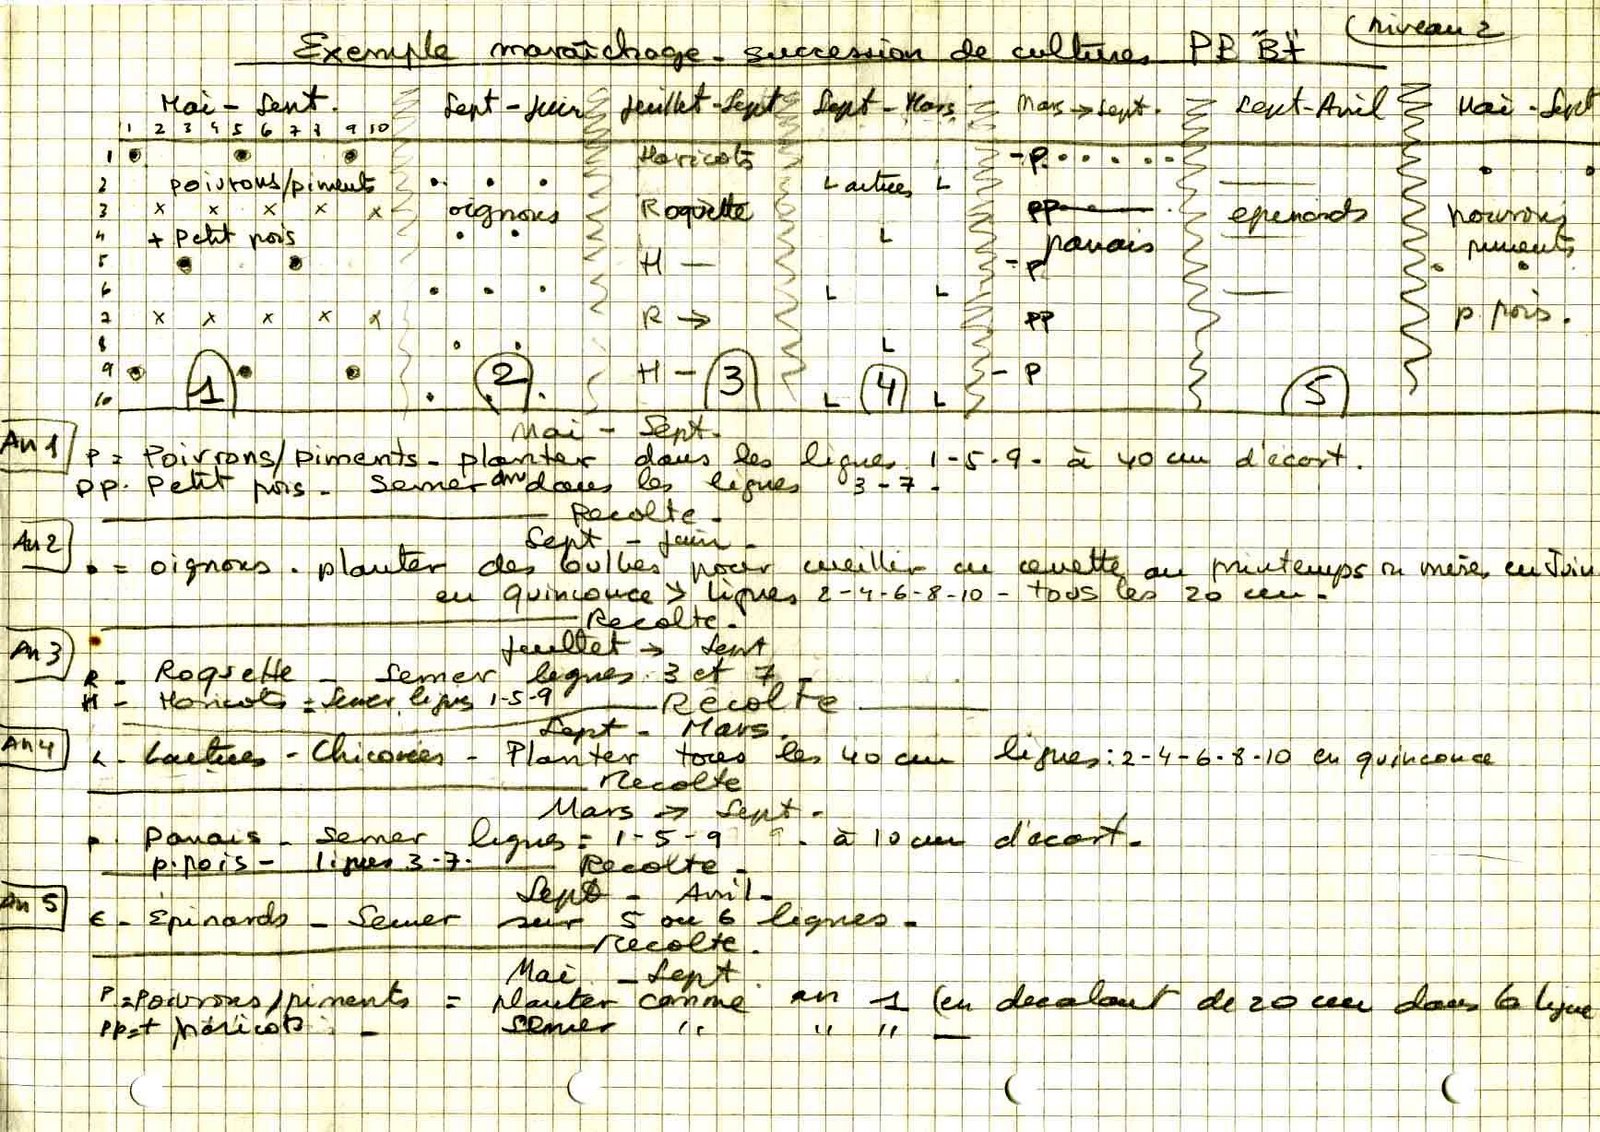 (niveau 2
Exemple maraîchage - succession de cultures PB "B+"
Mai - Sept. Sept - Juin Juillet - Sept Sept - Mars Mars → Sept. Sept - Avril Mai - Sept
1 2 3 4 5 6 7 8 9 10
1 Haricots - P
2 poivrons/piments Laitues L
3 x x x x x oignons Roquette PP epinards pouvrons
4 + Petit pois L panais piments
5 H — - P
6 L L
7 x x x x x R → PP p. pois.
8 L
9 H — - P
10 L L
1 2 3 4 5
Mai - Sept.
An 1 P = Poivrons/piments - planter dans les lignes 1-5-9- à 40 cm d'écart.
PP. Petit pois - Semer dans les lignes 3-7-
Recolte -
Sept - Juin -
An 2 • = oignons . planter des bulbes pour cueillir en cevette au printemps ou mûres en Juin
en quinconce > lignes 2-4-6-8-10 - tous les 20 cm -
Recolte -
Juillet → Sept
An 3 R - Roquette - Semer lignes 3 et 7 -
H - Haricots = Semer lignes 1-5-9 RECOLTE
Sept - Mars.
An 4 L - Laitues - Chicorées - Planter tous les 40 cm lignes : 2-4-6-8-10 en quinconce
Recolte
Mars → Sept -
P . Panais - Semer lignes = 1-5-9 . à 10 cm d'ecart -
p.pois - lignes 3-7. Recolte -
Sept - Avril -
An 5 E - Epinards - Semer sur 5 ou 6 lignes -
Recolte .
Mai - Sept.
P = Poivrons/piments = planter comme an 1 (en decalant de 20 cm dans la ligne
PP = + haricots - semer " " " —